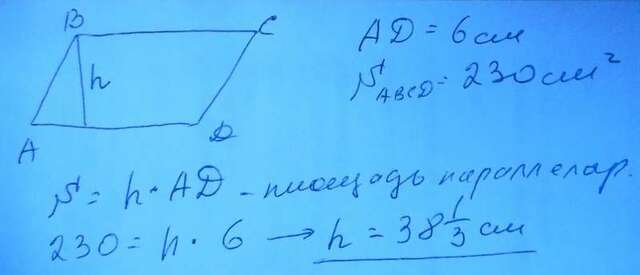 B C
h
A D
AD = 6 см
S ABCD = 230 см²
S = h · AD – площадь параллелогр.
230 = h · 6 → h = 38 1/3 см